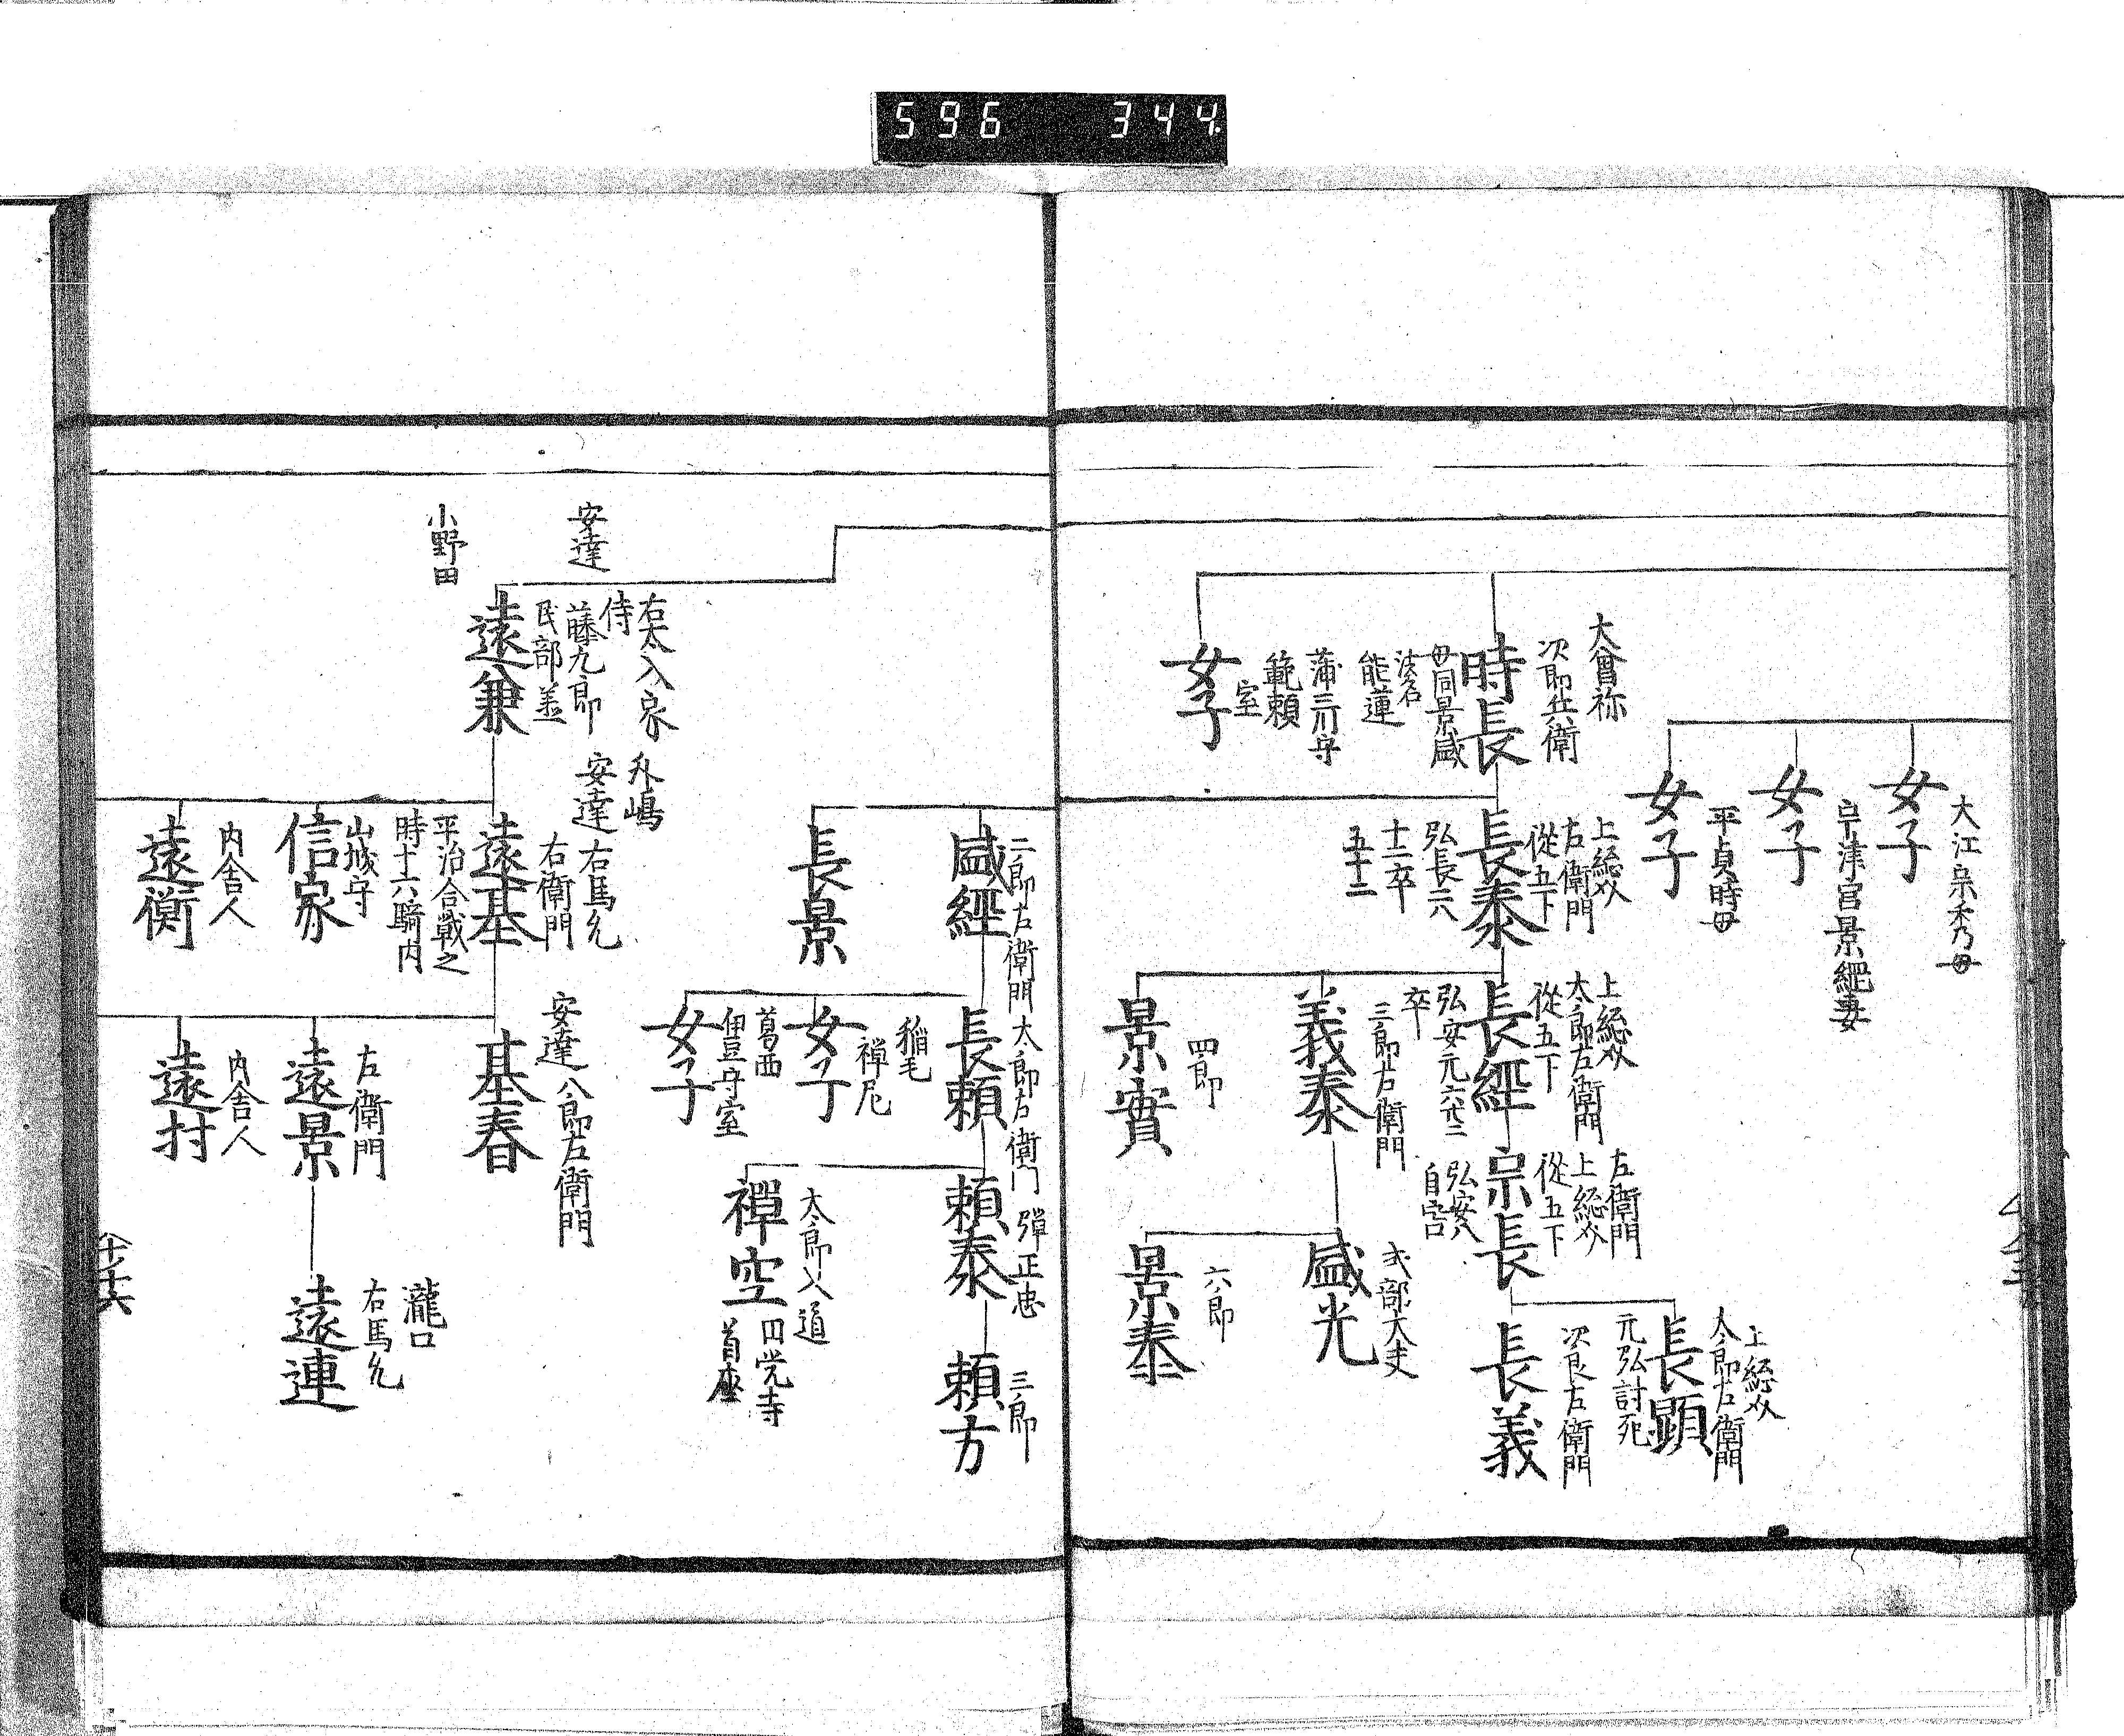 596 344
女子
大江宗秀母
女子
宇津宮景綱妻
女子
平貞時母
大曾祢
次郎兵衛
時長
母同景盛
法名
能蓮
女子
蒲三川守
範頼
室
上総介
左衛門
從五下
長泰
弘長二八
十二卒
五十二
上総介
太郎左衛門
從五下
長經
弘安元六廿二
卒
左衛門
上総介
從五下
宗長
弘安八
自害
上総介
太郎左衛門
長顕
元弘討死
次良左衛門
長義
三郎左衛門
義泰
式部大夫
盛光
六郎
景泰
四郎
景實
二郎左衛門
盛經
長景
太郎左衛門
長頼
稲毛
禅尼
女子
葛西
伊豆守室
女子
弾正忠
頼泰
三郎
頼方
太郎入道
禅空
田覚寺
首座
安達
小野田
右大入家
侍
藤九郎
民部丞
遠兼
外嶋
安達
右馬允
右衛門
遠基
平治合戦之
時十六騎内
山城守
信家
内舎人
遠衡
安達
八郎左衛門
基春
左衛門
遠景
瀧口
右馬允
遠連
内舎人
遠村